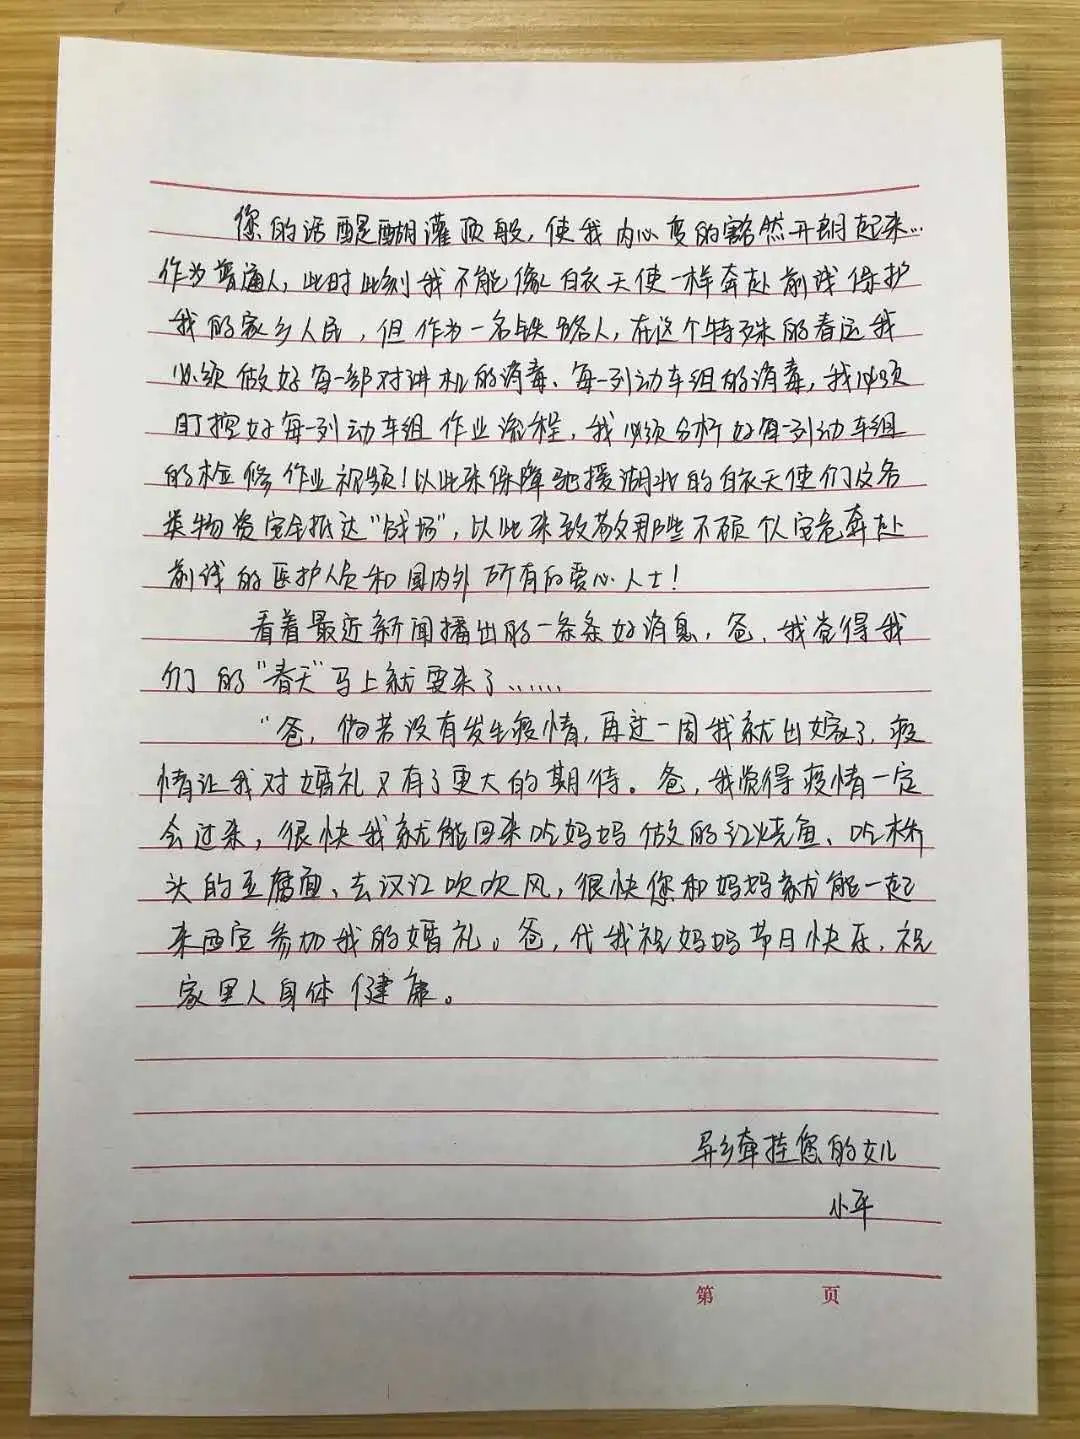 您的话醍醐灌顶般，使我内心变的豁然开朗起来…
作为普通人，此时此刻我不能像白衣天使一样奔赴前线保护
我的家乡人民，但作为一名铁路人，在这个特殊的春运我
必须做好每一部对讲机的消毒、每一列动车组的消毒，我必须
盯控好每一列动车组作业流程，我必须分析好每一列动车组
的检修作业视频！以此来保障驰援湖北的白衣天使们及各
类物资安全抵达“战场”，以此来致敬那些不顾个人安危奔赴
前线的医护人员和国内外所有的爱心人士！
看着最近新闻播出的一条条好消息，爸，我觉得我
们的“春天”马上就要来了……
“爸，倘若没有发生疫情，再过一周我就出嫁了，疫
情让我对婚礼又有了更大的期待。爸，我觉得疫情一定
会过去，很快我就能回来吃妈妈做的红烧鱼、吃桥
头的豆腐面、去汉江吹吹风，很快您和妈妈就能一起
来西安参加我的婚礼。爸，代我祝妈妈节日快乐，祝
家里人身体健康。
异乡牵挂您的女儿
小平
第 页